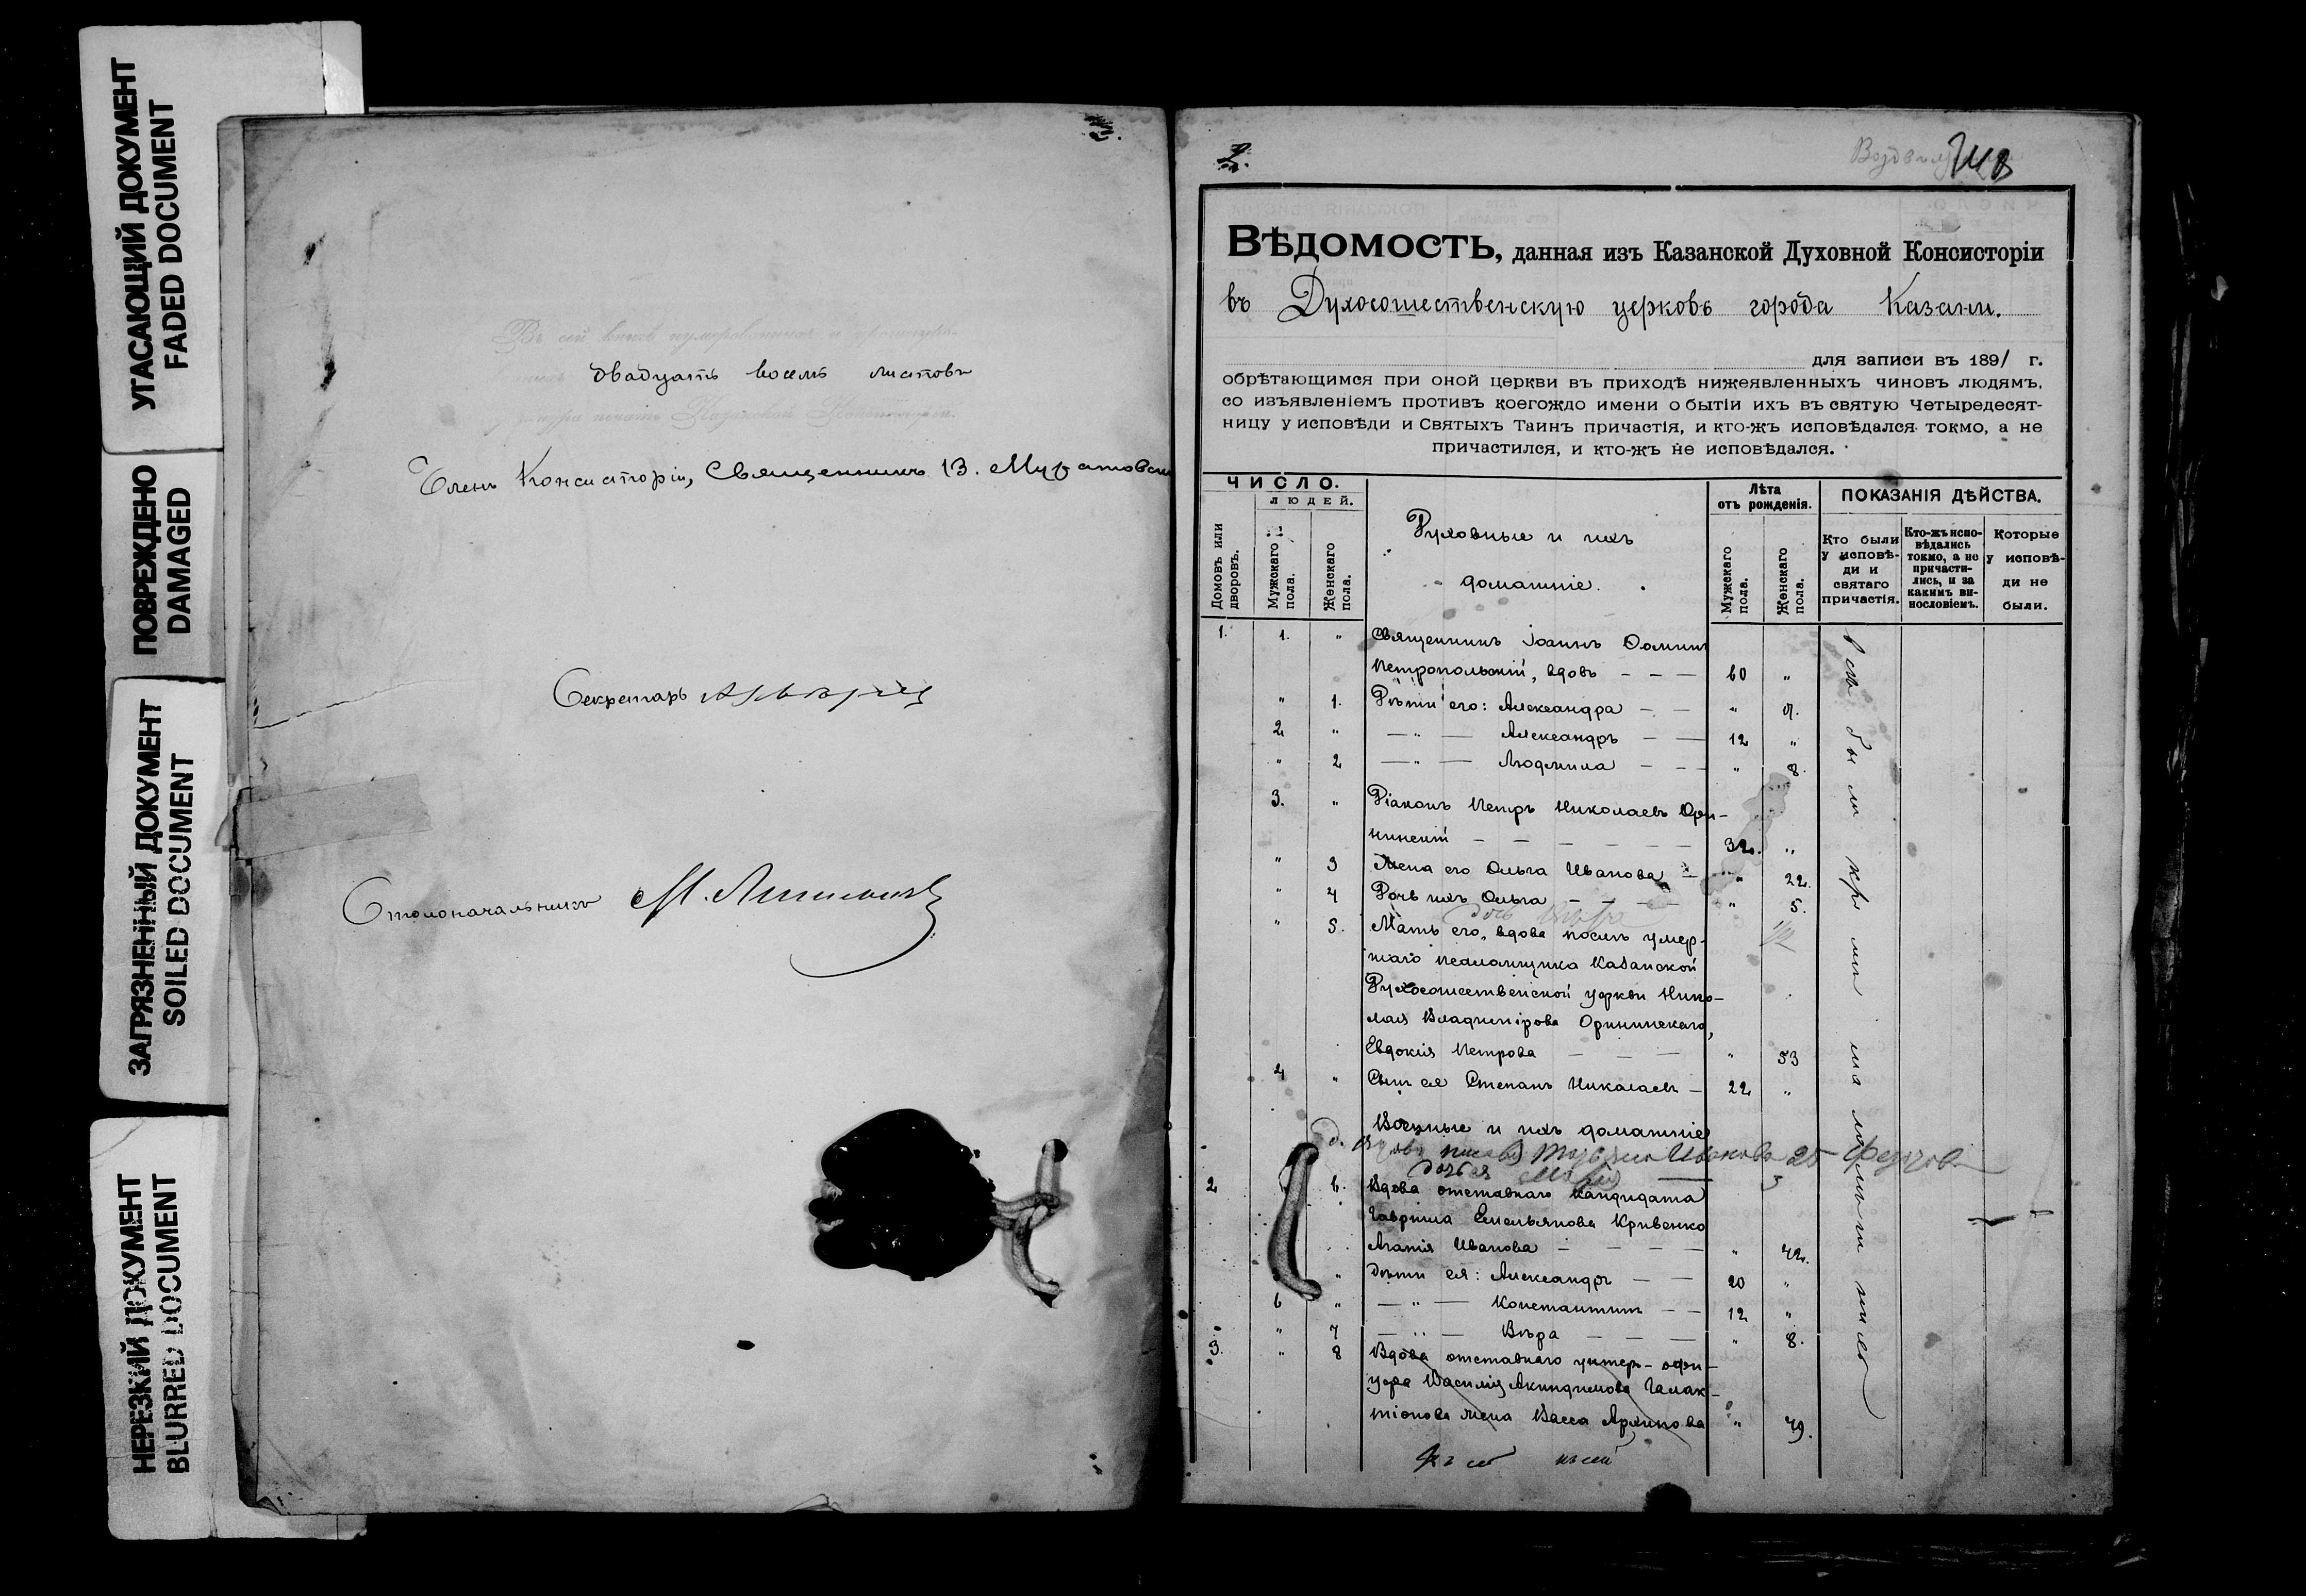 УГАСАЮЩИЙ ДОКУМЕНТ
FADED DOCUMENT
ПОВРЕЖДЕНО
DAMAGED
ЗАГРЯЗНЕННЫЙ ДОКУМЕНТ
SOILED DOCUMENT
НЕРЕЗКИЙ ДОКУМЕНТ
BLURRED DOCUMENT
двадцать восемь листовъ
Членъ Консисторіи, Священникъ
Секретарь
Столоначальникъ М.
2.
ВѢДОМОСТЬ, данная изъ Казанской Духовной Консисторіи
въ Духосошественскую церковь города Казани.
для записи въ 1891 г.
обрѣтающимся при оной церкви въ приходѣ нижеявленныхъ чиновъ людямъ,
со изъявленіемъ противъ коегождо имени о бытіи ихъ въ святую Четыредесят-
ницу у исповѣди и Святыхъ Таинъ причастія, и кто-жъ исповѣдался токмо, а не
причастился, и кто-жъ не исповѣдался.
ЧИСЛО.
людей.
Домовъ или дворовъ.
Мужскаго пола.
Женскаго пола.
Духовные и ихъ
домашніе.
Лѣта отъ рожденія.
Мужскаго пола.
Женскаго пола.
ПОКАЗАНІЯ ДѢЙСТВА.
Кто были у исповѣ-ди и святаго причастія.
Кто-жъ испо-вѣдались токмо, а не причасти-лись, и за какимъ ви-нословіемъ.
Которые у исповѣ-ди не были.
1. 1. " Священникъ Іоаннъ Ѳоминъ
Петропольскій, вдовъ — — — 60 "
" 1. Дѣти его: Александра — — "
2 " — " — Александръ — — 12 "
" 2 — " — Людмила — — — " 8.
3. " Діаконъ Петръ Николаевъ Ори-
нинскій — — — — — — 32. "
" 3 Жена его Ольга Иванова — " 22.
" 4 Дочь ихъ Ольга — — — — " 5.
" 5. Мать его, вдова послѣ умер-
шаго псаломщика Казанской
Духосошественской церкви Нико-
лая Владимірова Орининскаго,
Евдокія Петрова — — — " 53
4 " Сынъ ея Степанъ Николаевъ — 22 "
Военные и ихъ домашніе
2 6. Вдова отставнаго кандидата
Гавріила Емельянова Кривенко
Агапія Иванова — — — — " 42.
" Дѣти ея: Александръ — — 20 "
6 " — " — Константинъ — — 12 "
" 7 — " — Вѣра — — — " 8.
3. " 8 Вдова отставнаго унтеръ-офи-
цера Василія Акиндинова Галак-
тіонова жена Васса " 49.